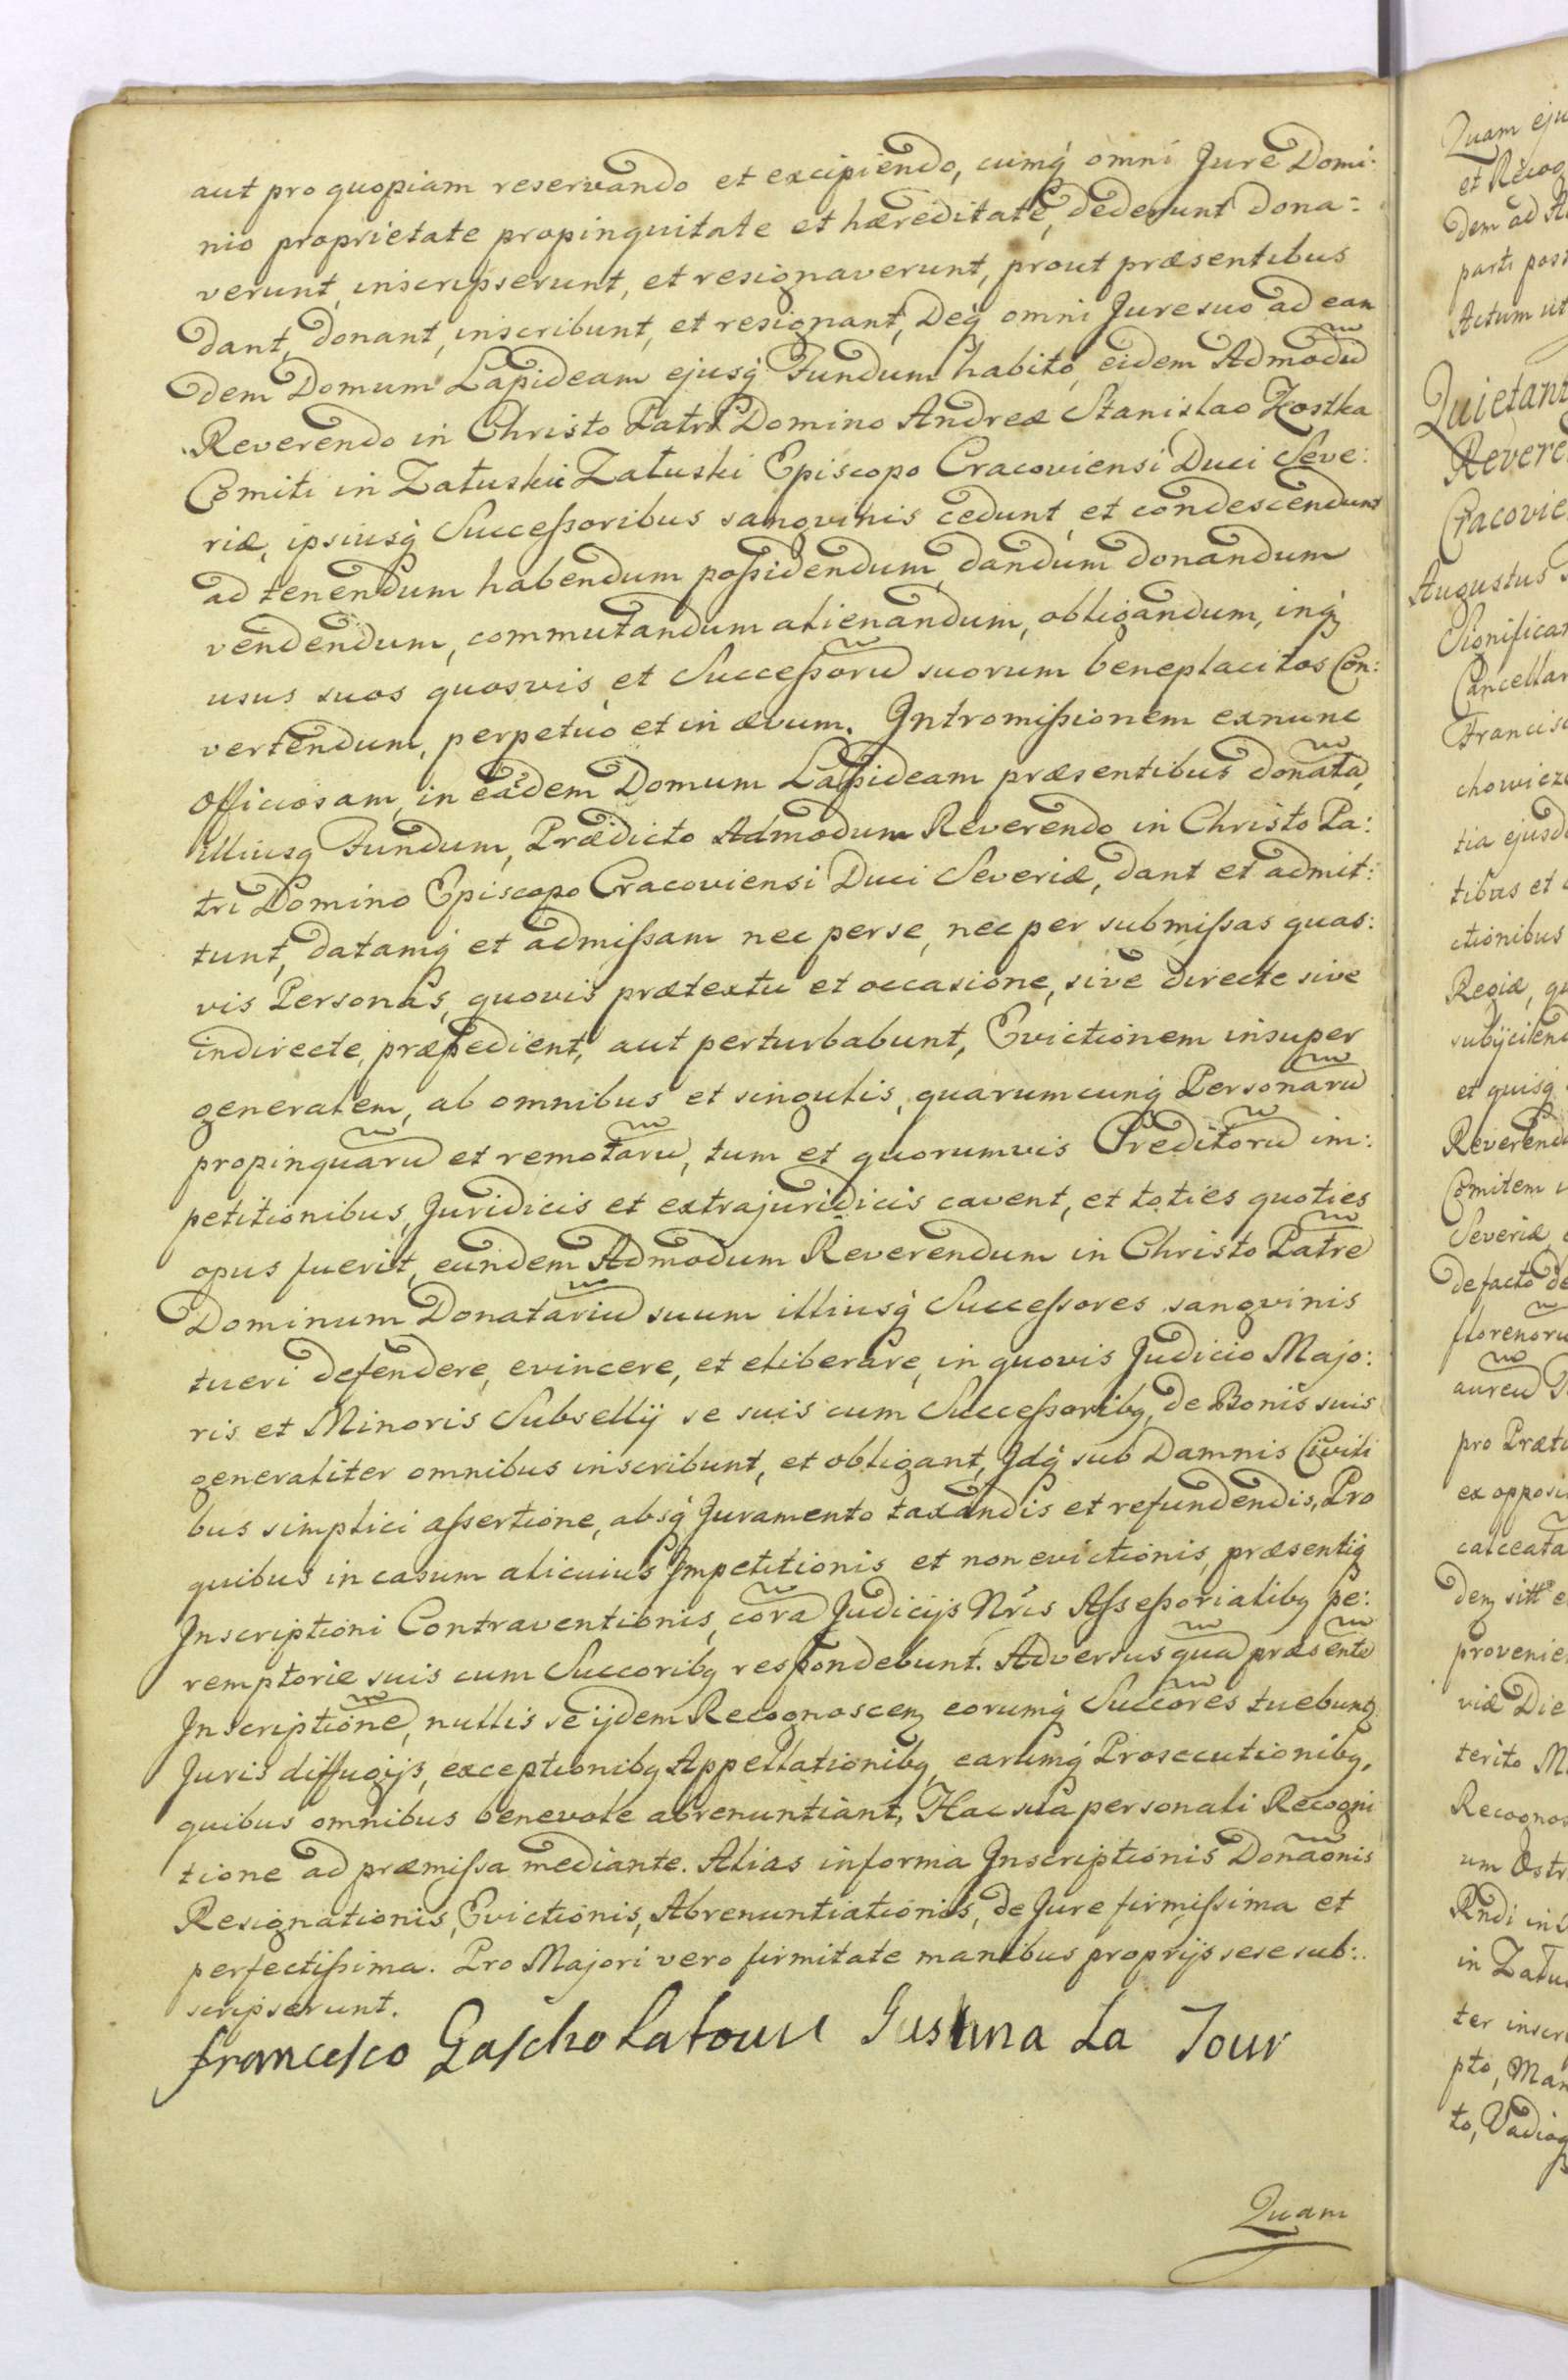 aut pro quopiam reservando et excipiendo, cumq̃ omni Jure Domi:
nio proprietate propinquitate et hæreditate, dederunt dona:
verunt, inscripserunt, et resignaverunt, prout præsentibus
dant, donant, inscribunt, et resignant, Deq̃ omni Jure suo ad ean
dem Domum Lapideam ejusq̃ Fundum habito, eidem Admodũ
Reverendo in Christo Patri Domino Andreæ Stanislao Kostka
Comiti in Załuskie Załuski Episcopo Cracoviensi Duci Seve:
riæ, ipsiusq̃ Successoribus sangvinis cedunt et condescendunt
ad tenendum habendum possidendum, dandum donandum
vendendum, commutandum alienandum, obligandum, inq̃
usus suos quosvis et Successorũ suorum beneplacitos Con:
vertendum, perpetuo et in ævum. Intromissionem exnunc
officiosam, in eãdem Domum Lapideam præsentibus donatã,
illiusq̃ Fundum, Prædicto Admodum Reverendo in Christo Pa:
tri Domino Episcopo Cracoviensi Duci Severiæ, dant et admit:
tunt, datamq̃ et admissam nec per se, nec per submissas quas:
vis Personas, quovis prætextu et occasione, sive directe sive
indirecte, præpedient, aut perturbabunt, Evictionem insuper
generalem, ab omnibus et singulis, quarumcunq̃ Personarũ
propinquarũ et remotarũ, tum et quorumvis Creditorũ im:
petitionibus, Juridicis et extrajuridicis cavent, et toties quoties
opus fuerit, eundem Admodum Reverendum in Christo Patrẽ
Dominum Donatariũ suum illiusq̃ Successores sangvinis
tueri defendere, evincere, et eliberare, in quovis Judicio Majo:
ris et Minoris Subsellij se suis cum Successoribq, de Bonis suis
generaliter omnibus inscribunt, et obligant, Idq̃ sub Damnis Civili
bus simplici assertione, absq̃ Juramento taxandis et refundendis, Pro
quibus in casum alicuius Impetitionis et non evictionis, præsentiq̃
Inscriptioni Contraventionis, corã Judicijs Nr̃is Assessorialibq pe:
remptorie suis cum Succoribq respondebunt. Adversus quã præsentẽ
Inscriptionẽ, nullis se ijdem Recognoscen̨ eorumq̃ Succõres tuebunt̨
Juris diffugijs, exceptionibq Appellationibq, earumq̃ Prosecutionibq,
quibus omnibus benevole abrenuntiant, Hac sua personali Recogni
tione ad præmissa mediante. Alias in forma Inscriptionis Donãonis
Resignationis, Evictionis, Abrenuntiationis, de Jure firmissima et
perfectissima. Pro Majori vero firmitate manibus proprijs sese sub:
scripserunt.
francesco Gascho Latour Justina La Tour
Quam
Quam eju
et Recog
dem ad A
parti pos
Actum ut
Quietant
Revere
Cracovie
Augustus
Significa
Cancellar
Francisc
chowicz
tia ejusd
tibus et
ctionibus
Regiæ, qu
subijcien
et quisq̃
Reverend
Comitem
Severiæ
de facto de
florenorũ
aureũ
pro Præt
ex opposi
calceata
provenie
viæ Die
terito M
Recognos
um Ostr
Rndi in
in Załus
ter inscri
pto, Man